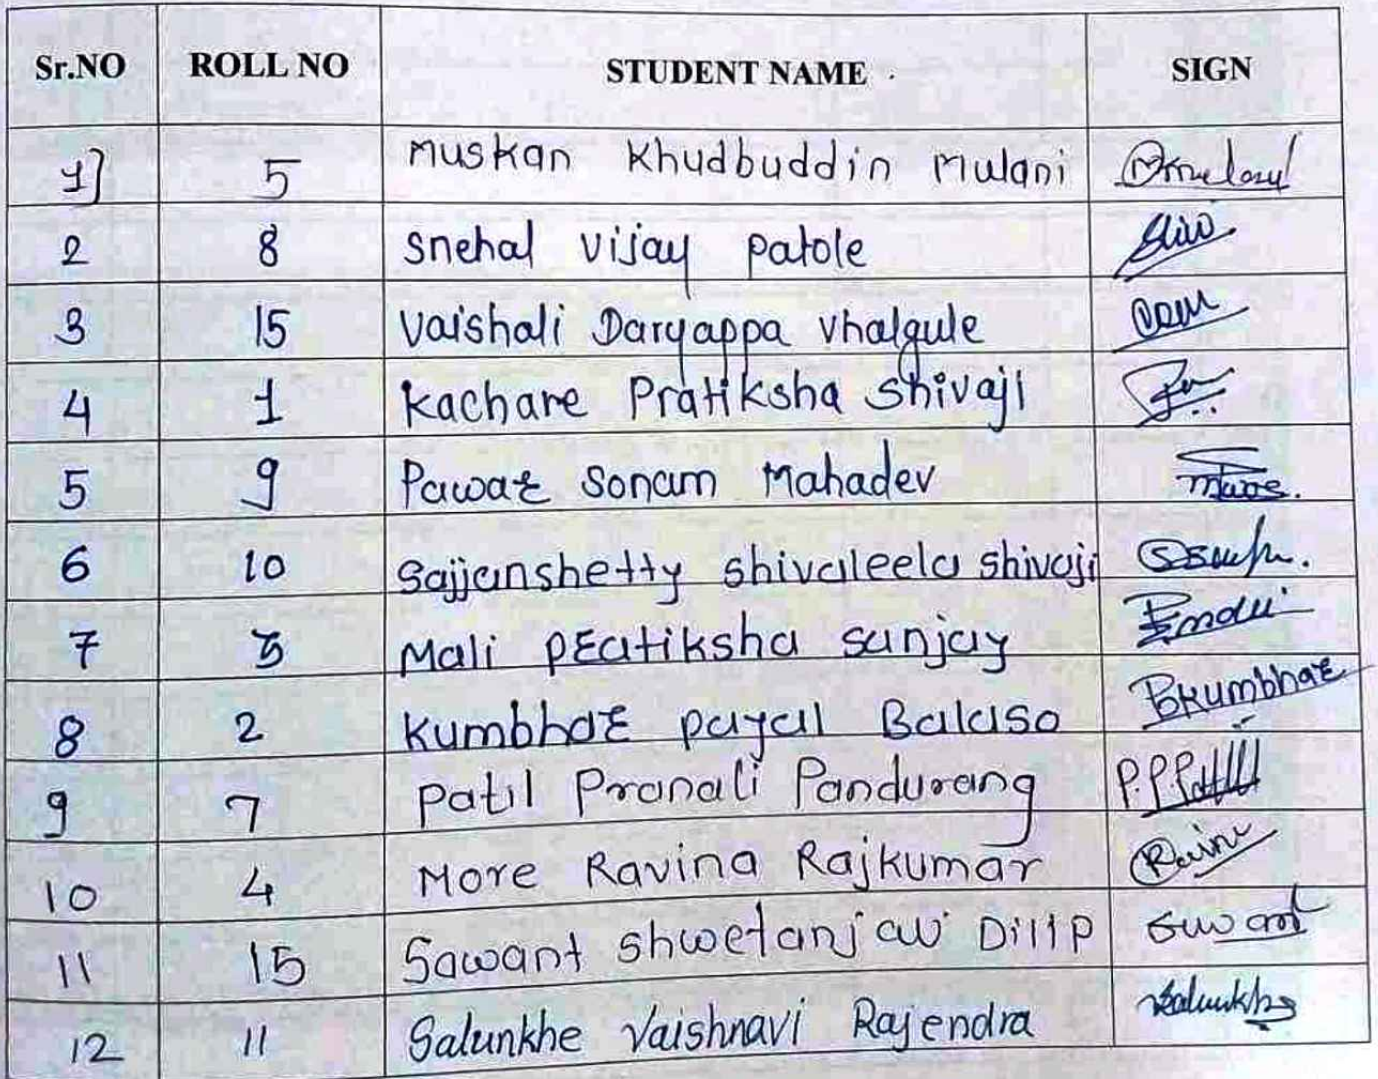 Sr.NO ROLL NO STUDENT NAME SIGN
1] 5 Muskan Khudbuddin Mulani
2 8 Snehal Vijay Patole
3 15 Vaishali Daryappa Vhalgule
4 1 Kachare Pratiksha Shivaji
5 9 Pawar Sonam Mahadev
6 10 Sajjanshetty Shivaleela Shivaji
7 3 Mali Pratiksha Sanjay
8 2 Kumbhar Payal Balaso BKumbhar
9 7 Patil Pranali Pandurang P.P.Patil
10 4 More Ravina Rajkumar
11 15 Sawant Shwetanjali Dilip Sawant
12 11 Salunkhe Vaishnavi Rajendra Salunkhe